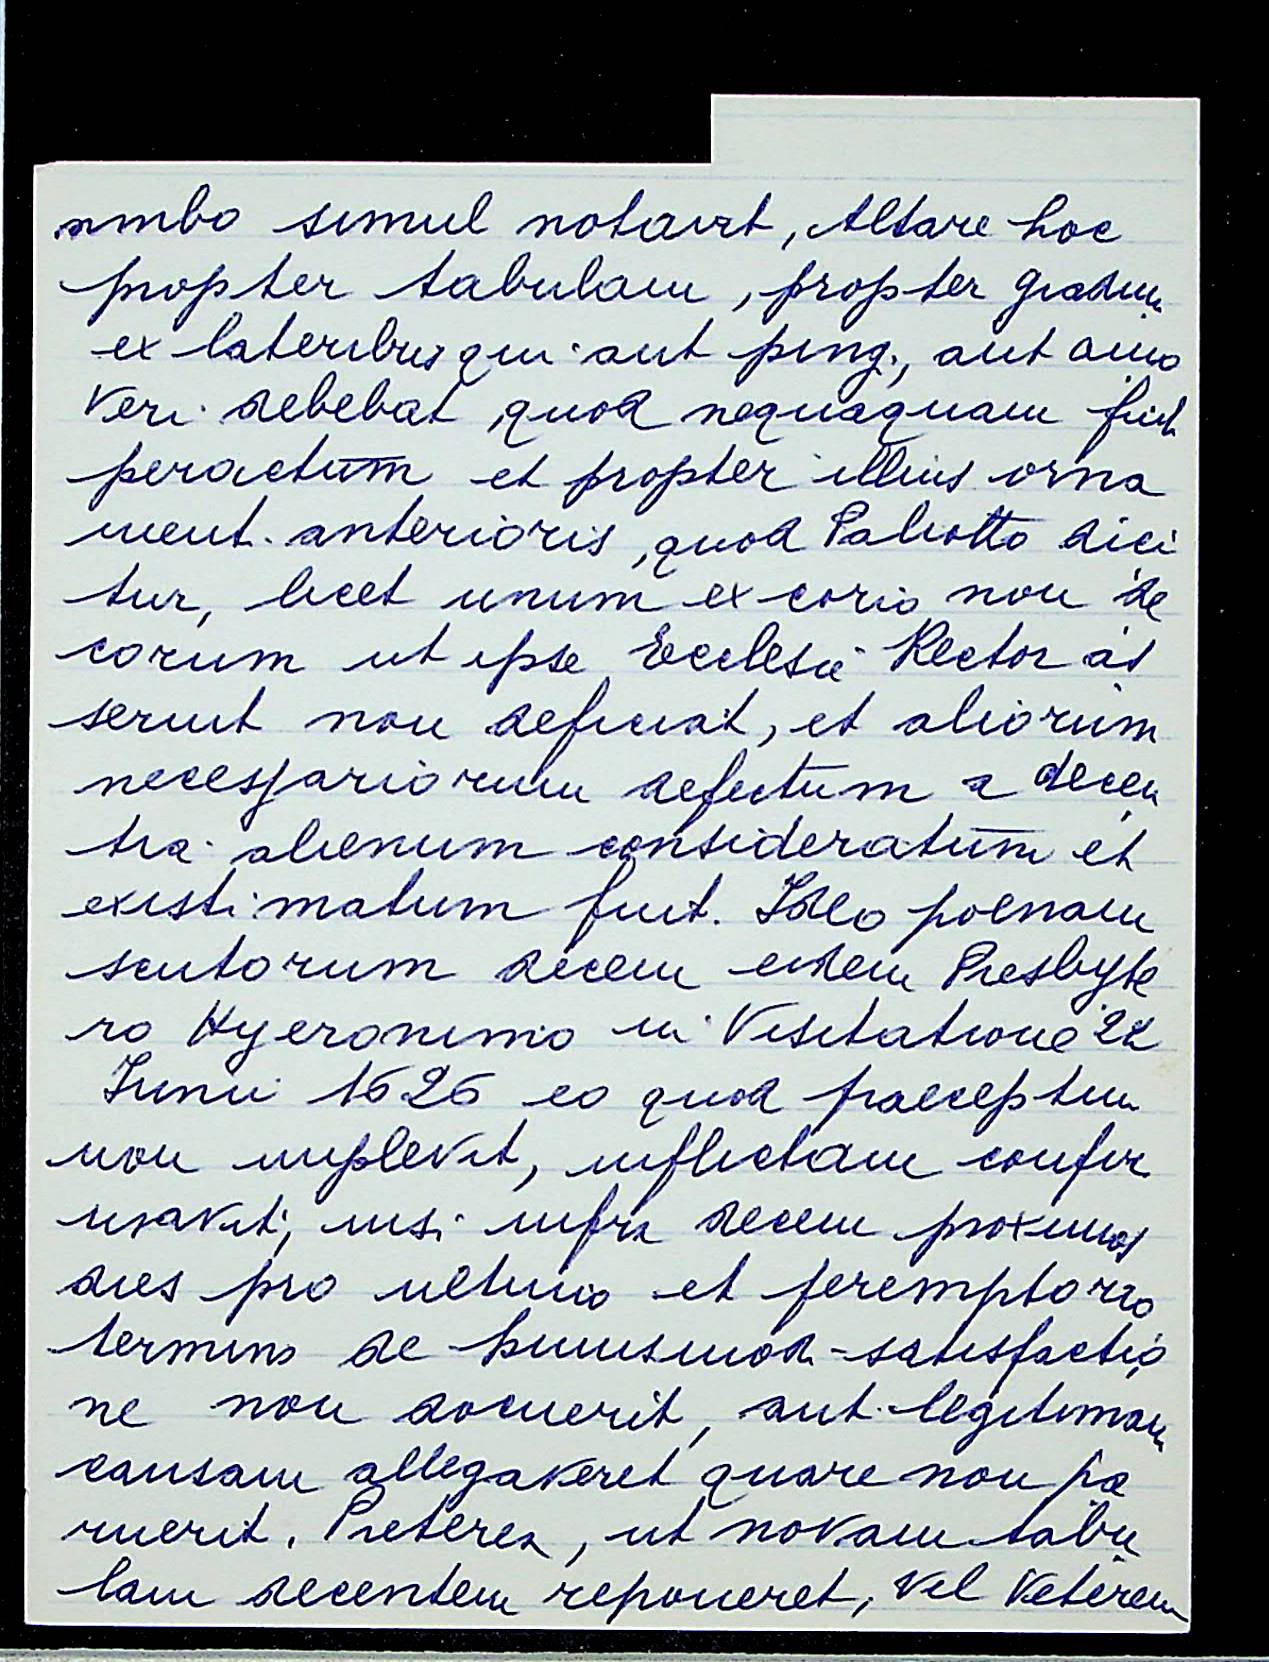 ambo simul notavit, Altare hoc
propter tabulam, propter gradum
ex lateribus qui aut ping., aut amo
veri debebat, quod nequaquam fuit
peractum et propter illius orna
ment. anterioris, quod Paliotto dici
tur, licet unum ex corio non de
corum ut ipse Ecclesiæ Rector as
seruit non deficiat, et aliorum
necessariorum defectum a decen
tia alienum consideratum et
existimatum fuit. Ideo poenam
scutorum decem eidem Presbyte
ro Hyeronimo in Visitatione 22
Junii 1626 eo quod praeceptum
non implevit, inflictam confir
mavit, nisi infra decem proximos
dies pro ultimo et peremptorio
termino de huiusmodi satisfactio
ne non docuerit, aut legitimam
causam allegaveret quare non pa
ruerit. Preterea, ut novam tabu
lam decentem reponeret, vel veterem